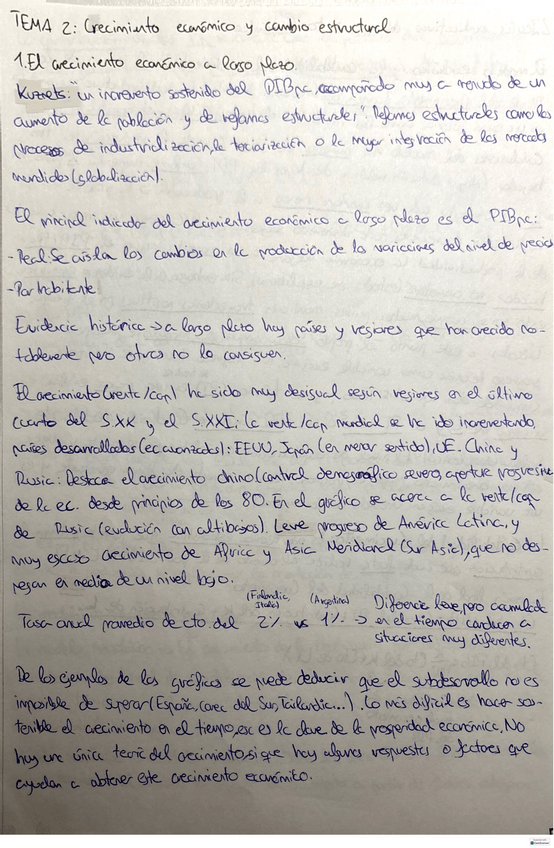 TEMA 2: Crecimiento económico y cambio estructural
1. El crecimiento económico a largo plazo.
Kuznets: "un incremento sostenido del PIBpc, acompañado muy a menudo de un
aumento de la población y de reformas estructurales". Reformas estructurales como los
procesos de industrialización, la terciarización o la mayor integración de los mercados
mundiales (globalización).
El principal indicador del crecimiento económico a largo plazo es el PIBpc:
- Real: Se aislan los cambios en la producción de las variaciones del nivel de precios
- Por habitante.
Evidencia histórica → a largo plazo hay países y regiones que han crecido no-
tablemente pero otros no lo consiguen.
El crecimiento (renta/cap) ha sido muy desigual según regiones en el último
cuarto del S.XX y el S.XXI; la renta/cap mundial se ha ido incrementando,
países desarrollados (ec avanzados): EEUU, Japón (en menor sentido), UE. China y
Rusia: Destaca el crecimiento chino (control demográfico severo, apertura progresiva
de la ec. desde principios de los 80. En el gráfico se acerca a la renta/cap
de Rusia (evolución con altibajos). Leve progreso de América Latina, y
muy escaso crecimiento de África y Asia Meridional (Sur Asia), que no des-
pegan en media de un nivel bajo.
Tasa anual promedio de cto del 2% (Finlandia, Italia) vs 1% (Argentina) → Diferencia leve, pero acumulada
en el tiempo conducen a
situaciones muy diferentes.
De los ejemplos de los gráficos se puede deducir que el subdesarrollo no es
imposible de superar (España, Corea del Sur, Tailandia...). Lo más difícil es hacer sos-
tenible el crecimiento en el tiempo, esc es la clave de la prosperidad económica. No
hay una única teoría del crecimiento, si que hay algunas respuestas o factores que
ayudan a obtener este crecimiento económico.